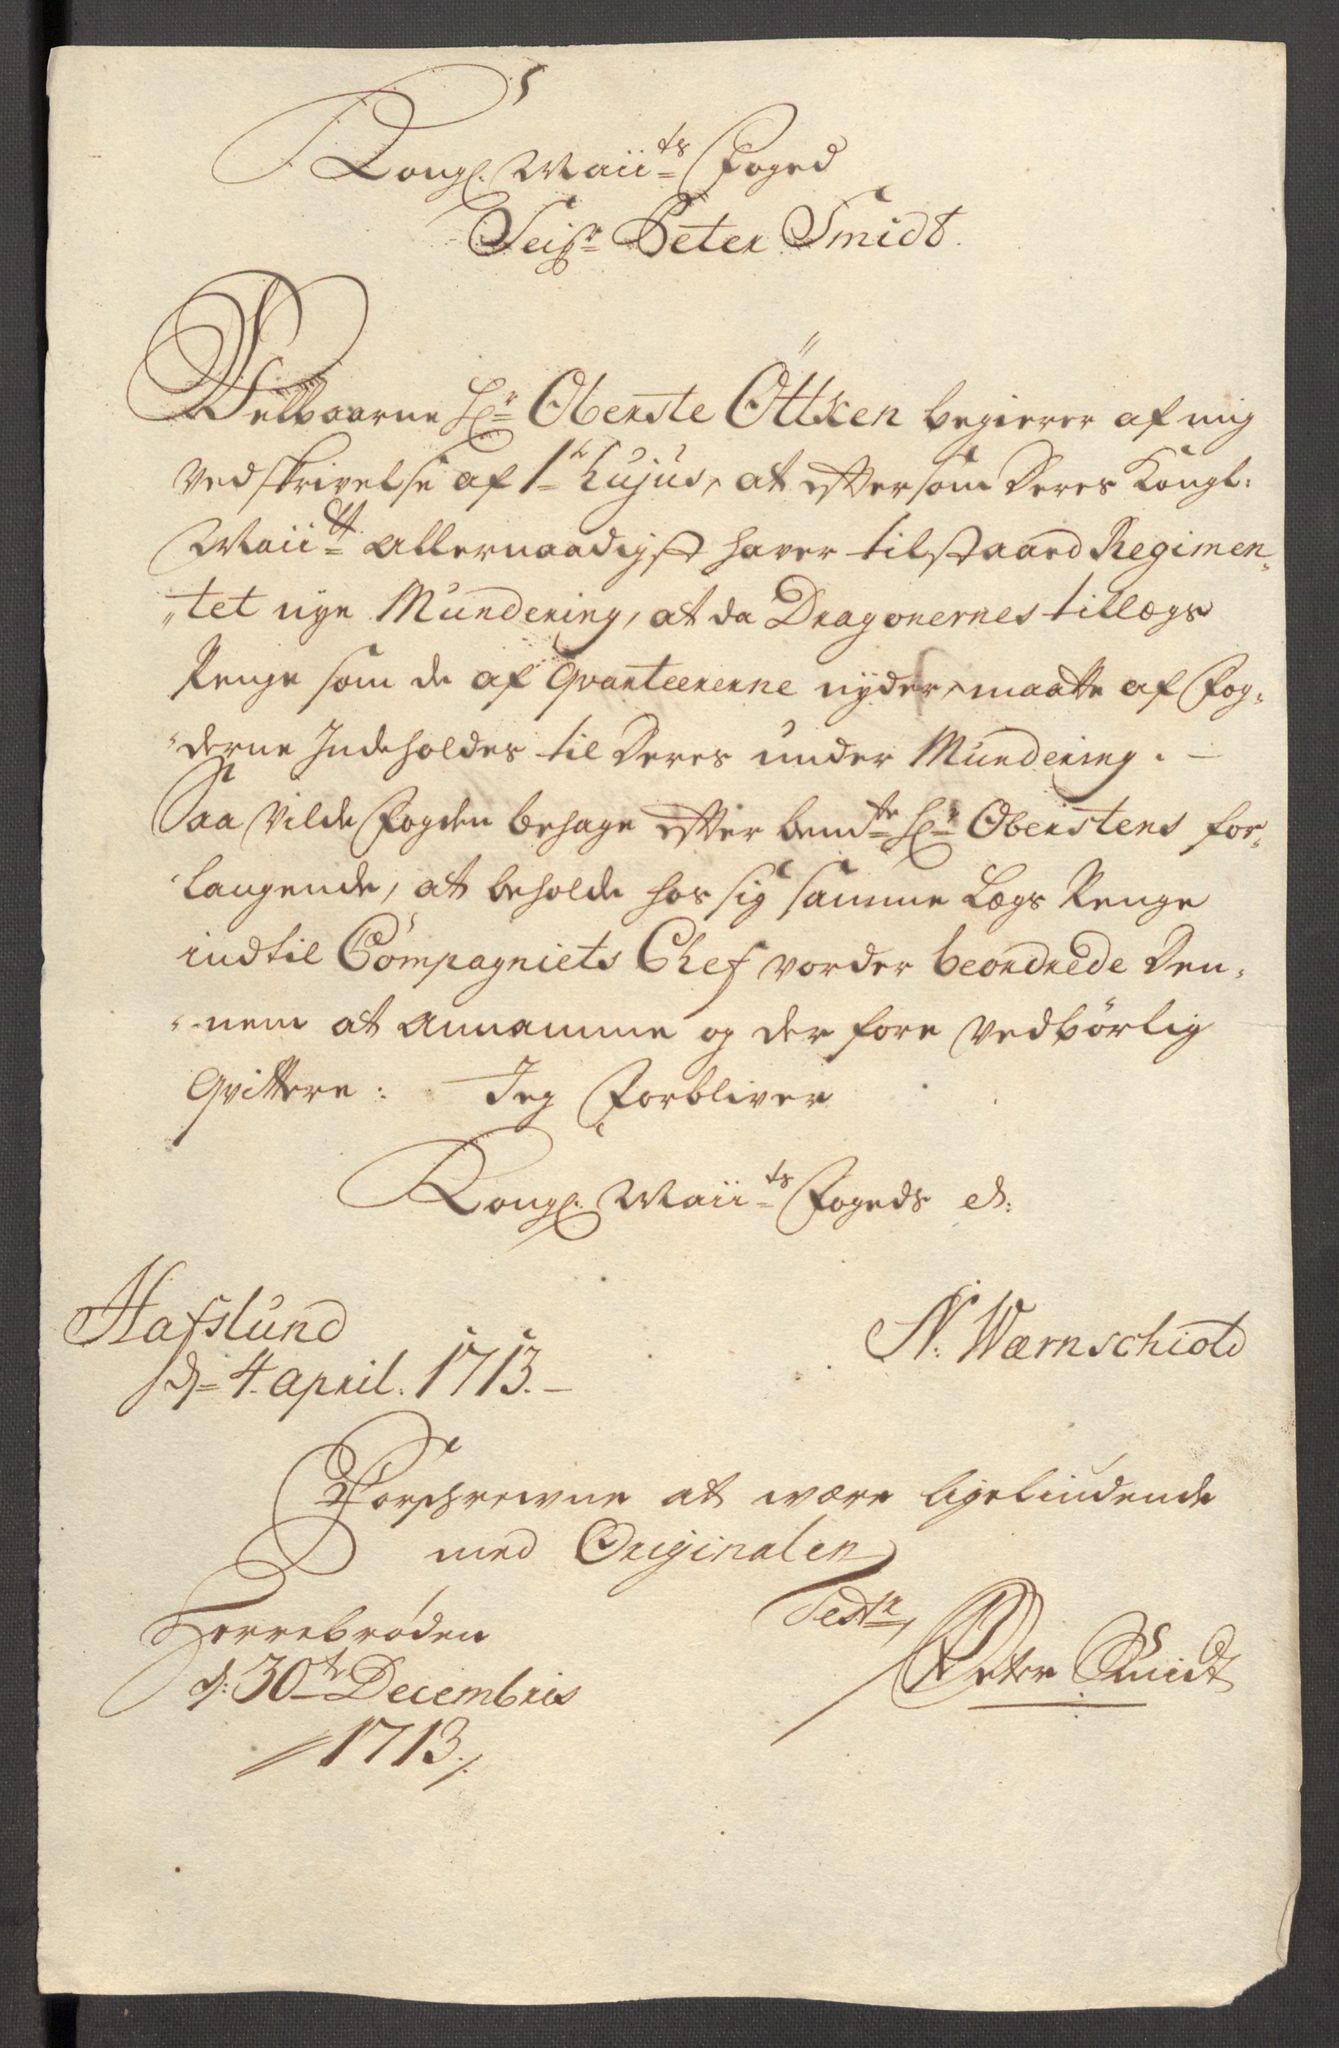 Kongl. Maii:ts Foged
Seigr Peter Smidt.
Velbaarne Hr Oberste Öttken begierer af mig
ved skrivelse af 1te hujus, at eftersom Deres Kongl:
Maii:tt allernaadigst haver tilstaaed Regimen-
tet nye Mundering, at da Dragonernes tillægs
Penge som de af Qvarteererne nyder, maatte af Fog-
derne Indeholdes til Deres under Mundering. -
Saa vilde Fogden behage efter bemte Hr Oberstens for-
langende, at beholde hos sig samme Lægs Penge
indtil Compagniets Chef vorder beordrede Den-
nem at annamme og der fore vedbörlig
Qvittere: Jeg Forbliver
Kongl. Maii:ts Fogeds
Hafslund N. Wærnschiold
d 4 april. 1713. -
Forschrewne at være ligelindende
med Originalen
Torrebrøden Testr
d: 30te Decembris Peter Smidt
1713.